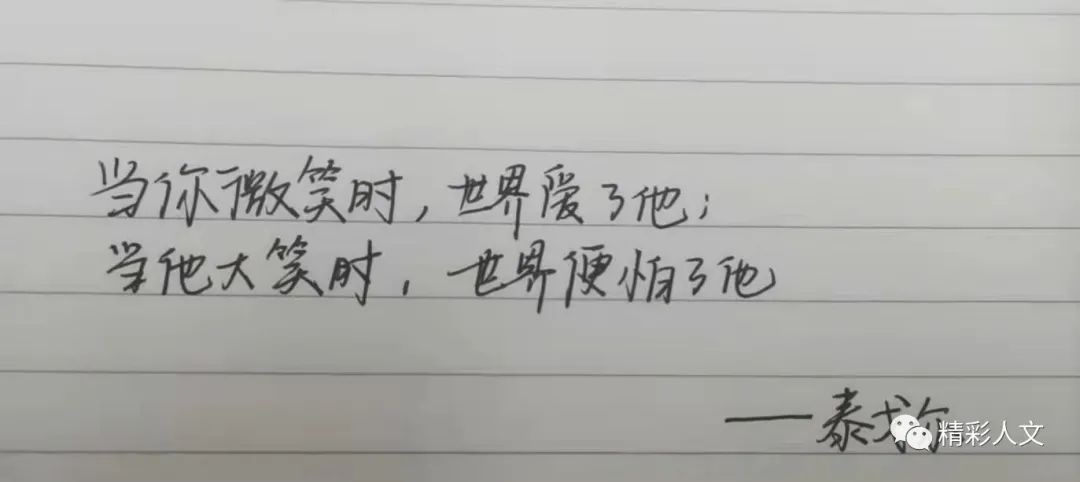 当你微笑时，世界爱了他；
当他大笑时，世界便怕了他
——泰戈尔
精彩人文